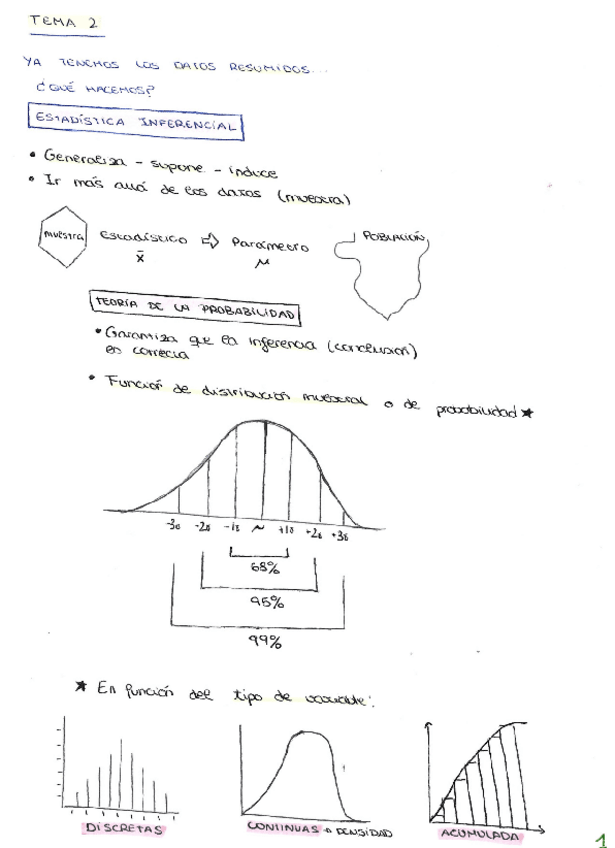 TEMA 2
YA TENEMOS LOS DATOS RESUMIDOS...
¿QUÉ HACEMOS?
ESTADÍSTICA INFERENCIAL
• Generaliza - supone - induce
• Ir más allá de los datos (muestra)
MUESTRA Estadístico ⇨ Parámetro POBLACIÓN
x̄ μ
TEORÍA DE LA PROBABILIDAD
• Garantiza que la inferencia (conclusión)
es correcta
• Función de distribución muestral o de probabilidad ★
-3s -2s -1s μ +1s +2s +3s
68%
95%
99%
★ En función del tipo de variable:
DISCRETAS CONTINUAS o DENSIDAD ACUMULADA
1